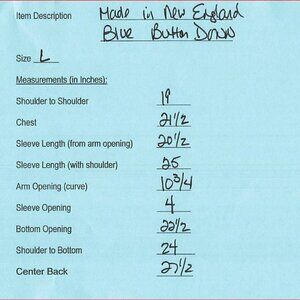 Item Description Made in New England
Blue Button Down
Size L
Measurements (in Inches):
Shoulder to Shoulder 19
Chest 21 1/2
Sleeve Length (from arm opening) 20 1/2
Sleeve Length (with shoulder) 25
Arm Opening (curve) 10 3/4
Sleeve Opening 4
Bottom Opening 22 1/2
Shoulder to Bottom 24
Center Back 27 1/2